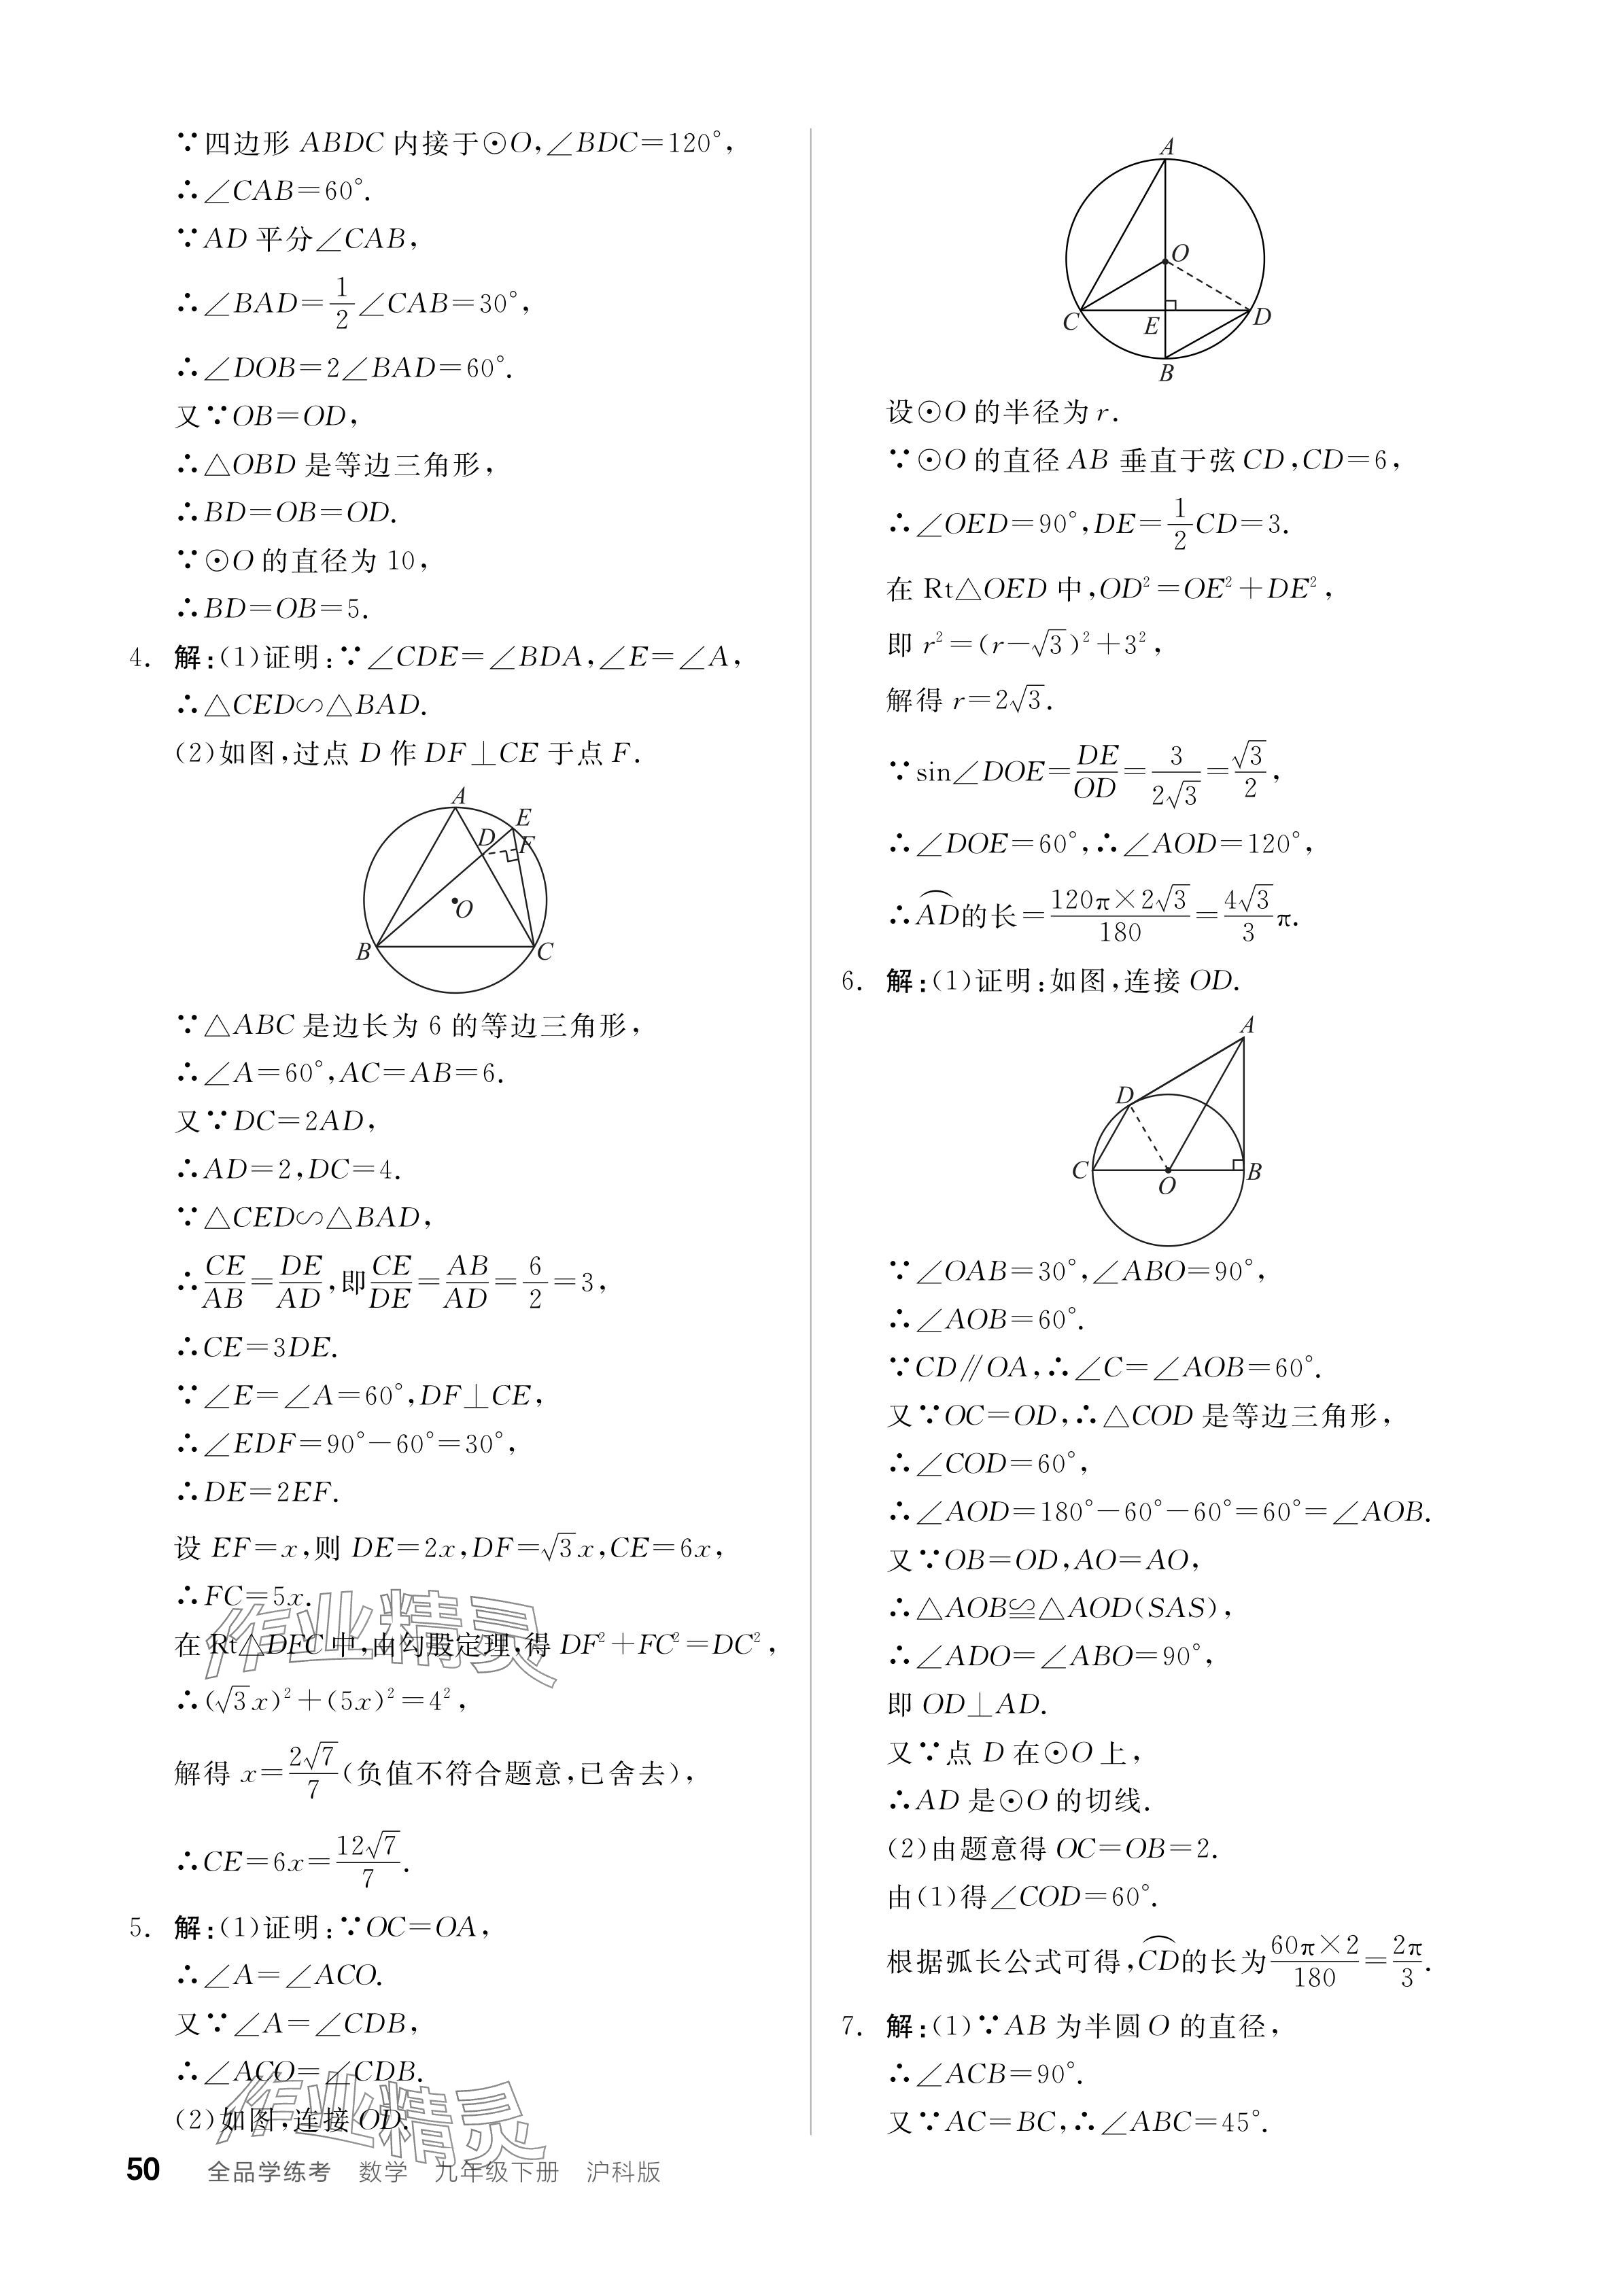 ∵四边形 ABDC 内接于⊙O,∠BDC=120°,
∴∠CAB=60°.
∵AD 平分∠CAB,
∴∠BAD=1/2∠CAB=30°,
∴∠DOB=2∠BAD=60°.
又∵OB=OD,
∴△OBD 是等边三角形,
∴BD=OB=OD.
∵⊙O 的直径为 10,
∴BD=OB=5.
4. 解:(1)证明:∵∠CDE=∠BDA,∠E=∠A,
∴△CED∽△BAD.
(2)如图,过点 D 作 DF⊥CE 于点 F.
A
E
D
F
O
B
C
∵△ABC 是边长为 6 的等边三角形,
∴∠A=60°,AC=AB=6.
又∵DC=2AD,
∴AD=2,DC=4.
∵△CED∽△BAD,
∴CE/AB=DE/AD,即CE/DE=AB/AD=6/2=3,
∴CE=3DE.
∵∠E=∠A=60°,DF⊥CE,
∴∠EDF=90°-60°=30°,
∴DE=2EF.
设 EF=x,则 DE=2x,DF=√3x,CE=6x,
∴FC=5x.
在 Rt△DFC 中,由勾股定理,得 DF²+FC²=DC²,
∴(√3x)²+(5x)²=4²,
解得 x=2√7/7(负值不符合题意,已舍去),
∴CE=6x=12√7/7.
5. 解:(1)证明:∵OC=OA,
∴∠A=∠ACO.
又∵∠A=∠CDB,
∴∠ACO=∠CDB.
(2)如图,连接 OD.
作业精灵
作业精灵
A
O
C
E
D
B
设⊙O 的半径为 r.
∵⊙O 的直径 AB 垂直于弦 CD,CD=6,
∴∠OED=90°,DE=1/2CD=3.
在 Rt△OED 中,OD²=OE²+DE²,
即 r²=(r-√3)²+3²,
解得 r=2√3.
∵sin∠DOE=DE/OD=3/2√3=√3/2,
∴∠DOE=60°,∴∠AOD=120°,
∴⌒AD的长=120π×2√3/180=4√3/3π.
6. 解:(1)证明:如图,连接 OD.
A
D
C
O
B
∵∠OAB=30°,∠ABO=90°,
∴∠AOB=60°.
∵CD∥OA,∴∠C=∠AOB=60°.
又∵OC=OD,∴△COD 是等边三角形,
∴∠COD=60°,
∴∠AOD=180°-60°-60°=60°=∠AOB.
又∵OB=OD,AO=AO,
∴△AOB≌△AOD(SAS),
∴∠ADO=∠ABO=90°,
即 OD⊥AD.
又∵点 D 在⊙O 上,
∴AD 是⊙O 的切线.
(2)由题意得 OC=OB=2.
由(1)得∠COD=60°.
根据弧长公式可得,⌒CD的长为60π×2/180=2π/3.
7. 解:(1)∵AB 为半圆 O 的直径,
∴∠ACB=90°.
又∵AC=BC,∴∠ABC=45°.
50 全品学练考 数学 九年级下册 沪科版